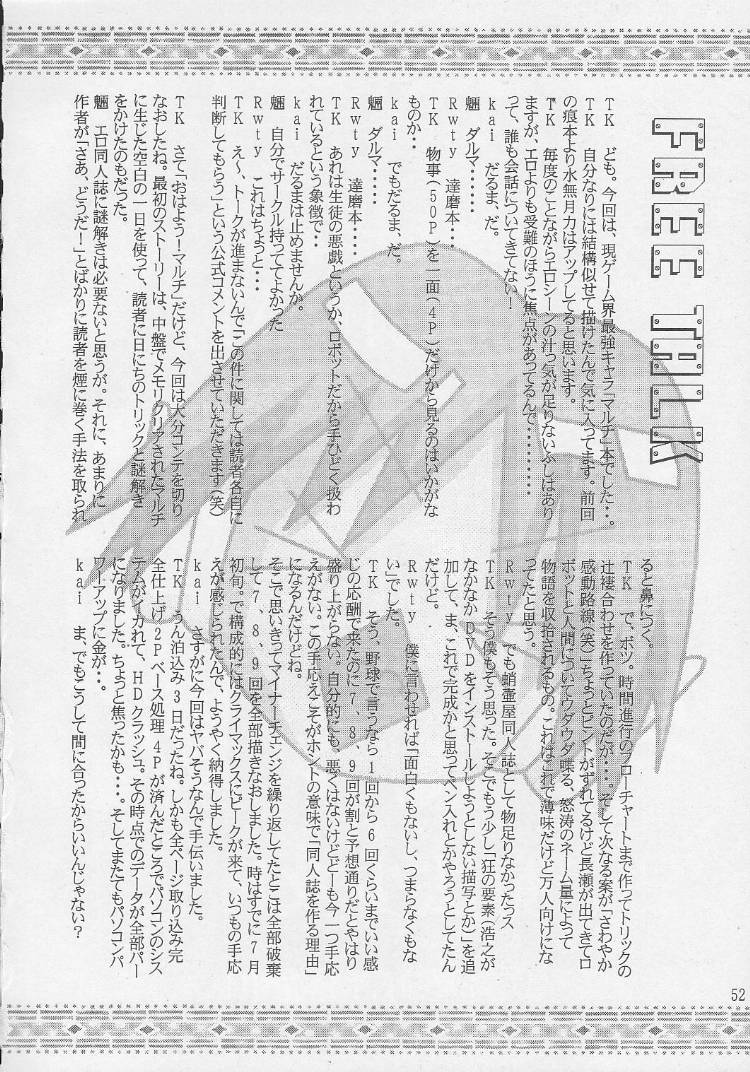 FREE TALK
TK ども。今回は、現ゲーム界最強キャラ「マルチ」本でした・・。
TK 自分なりには結構似せて描けたんで気に入ってます。前回
の痕本より水無月力はアップしてると思います。
TK 毎度のことながらエロシーンの汁っ気が足りないふしはあり
ますが、エロよりも受難のほうに焦点があってるんで・・・・・・・・・
って、誰も会話についてきてない！
kai だるま、だ。
魎 ダルマ・・・・・
Rwty 達磨本・・・・・
TK 物事(50P)を一面(4P)だけから見るのはいかがな
ものか・・
kai でもだるま、だ。
魎 ダルマ・・・・・
Rwty 達磨本・・・・・
TK あれは生徒の悪戯というか、ロボットだから手ひどく扱わ
れているという象徴で・・
kai だるまは止めませんか。
魎 自分でサークル持っててよかった
Rwty これはちょっと・・・
TK え〜、トークが進まないんで「この件に関しては読者各自に
判断してもらう」という公式コメントを出させていただきます(笑)
TK さて「おはよう！マルチ」だけど、今回は大分コンテを切り
なおしたね。最初のストーリーは、中盤でメモリクリアされたマルチ
に生じた空白の一日を使って、読者に日にちのトリックと謎解き
をかけたのもだった。
魎 エロ同人誌に謎解きは必要ないと思うが。それに、あまりに
作者が「さあ、どうだ！」とばかりに読者を煙に巻く手法を取られ
ると鼻につく。
TK で、ボツ。時間進行のフローチャートまで作ってトリックの
辻褄合わせを作っていたのだが・・・。そして次なる案が「さわやか
感動路線(笑)」ちょっとピントがずれてるけど長瀬が出てきてロ
ボットと人間についてウダウダ喋る、怒涛のネーム量によって
物語を収拾されるもの。これはこれで薄味だけど万人向けにな
ってたと思う。
Rwty でも蛸壷屋同人誌として物足りなかったっス
TK そう僕もそう思った。そこでもう少し「狂の要素(浩之が
なかなかDVDをインストールしようとしない描写とか)」を追
加して、ま、これで完成かと思ってペン入れとかやろうとしてたん
だけど。
Rwty 僕に言わせれば「面白くもないし、つまらなくもな
い」でした。
TK そう、野球で言うなら1回から6回くらいまでいい感
じの応酬で来たのに7、8、9回が割と予想通りだとやはり
盛り上がらない。自分的にも。悪くはないけどどーも今一つ手応
えがない。この手応えこそがホントの意味で「同人誌を作る理由」
になるんだけどね。
そこで思いきってマイナーチェンジを繰り返してたとこは全部破棄
して7、8、9回を全部描きなおしました。時はすでに7月
初旬。で構成的にはクライマックスにピークが来て、いつもの手応
えが感じられたんで、ようやく納得しました。
kai さすがに今回はヤバそうなんで手伝いました。
TK うん泊込み3日だったね。しかも全ページ取り込み完
全仕上げ2Pベース処理4Pが済んだところでパソコンのシス
テムがイカれて、HDクラッシュ。その時点でのデータが全部パー
になりました。ちょっと焦ったかも・・・。そしてまたてもパソコンパ
ワーアップに金が・・。
kai ま、でもこうして間に合ったからいいんじゃない？
52